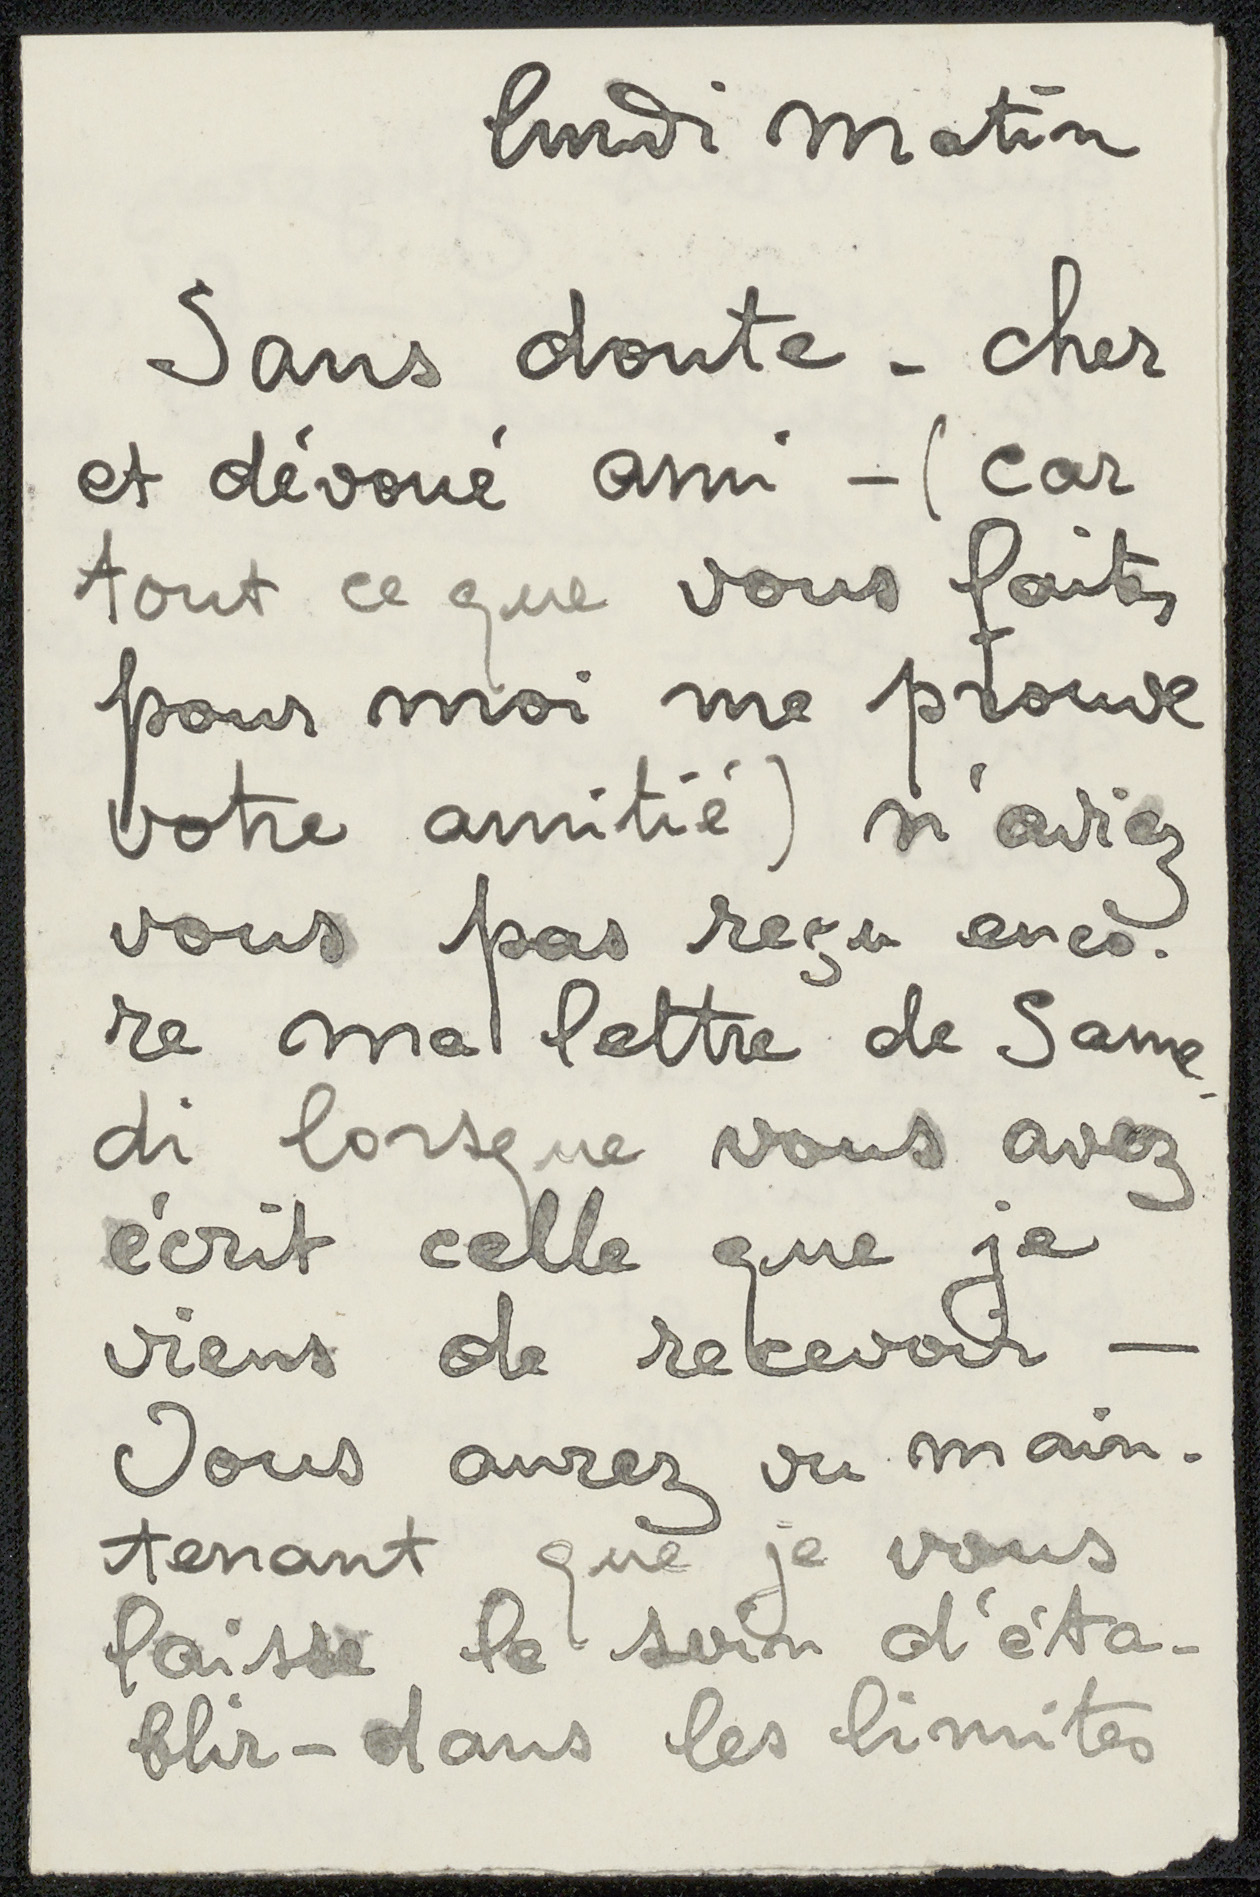 lundi matin
Sans doute - cher
et dévoué ami - (car
tout ce que vous faites
pour moi me prouve
votre amitié) n'aviez
vous pas reçu enco-
re ma lettre de Same-
di lorsque vous avez
écrit celle que je
viens de recevoir —
Vous aurez vu main-
tenant que je vous
laisse le soin d'éta-
blir - dans les limites